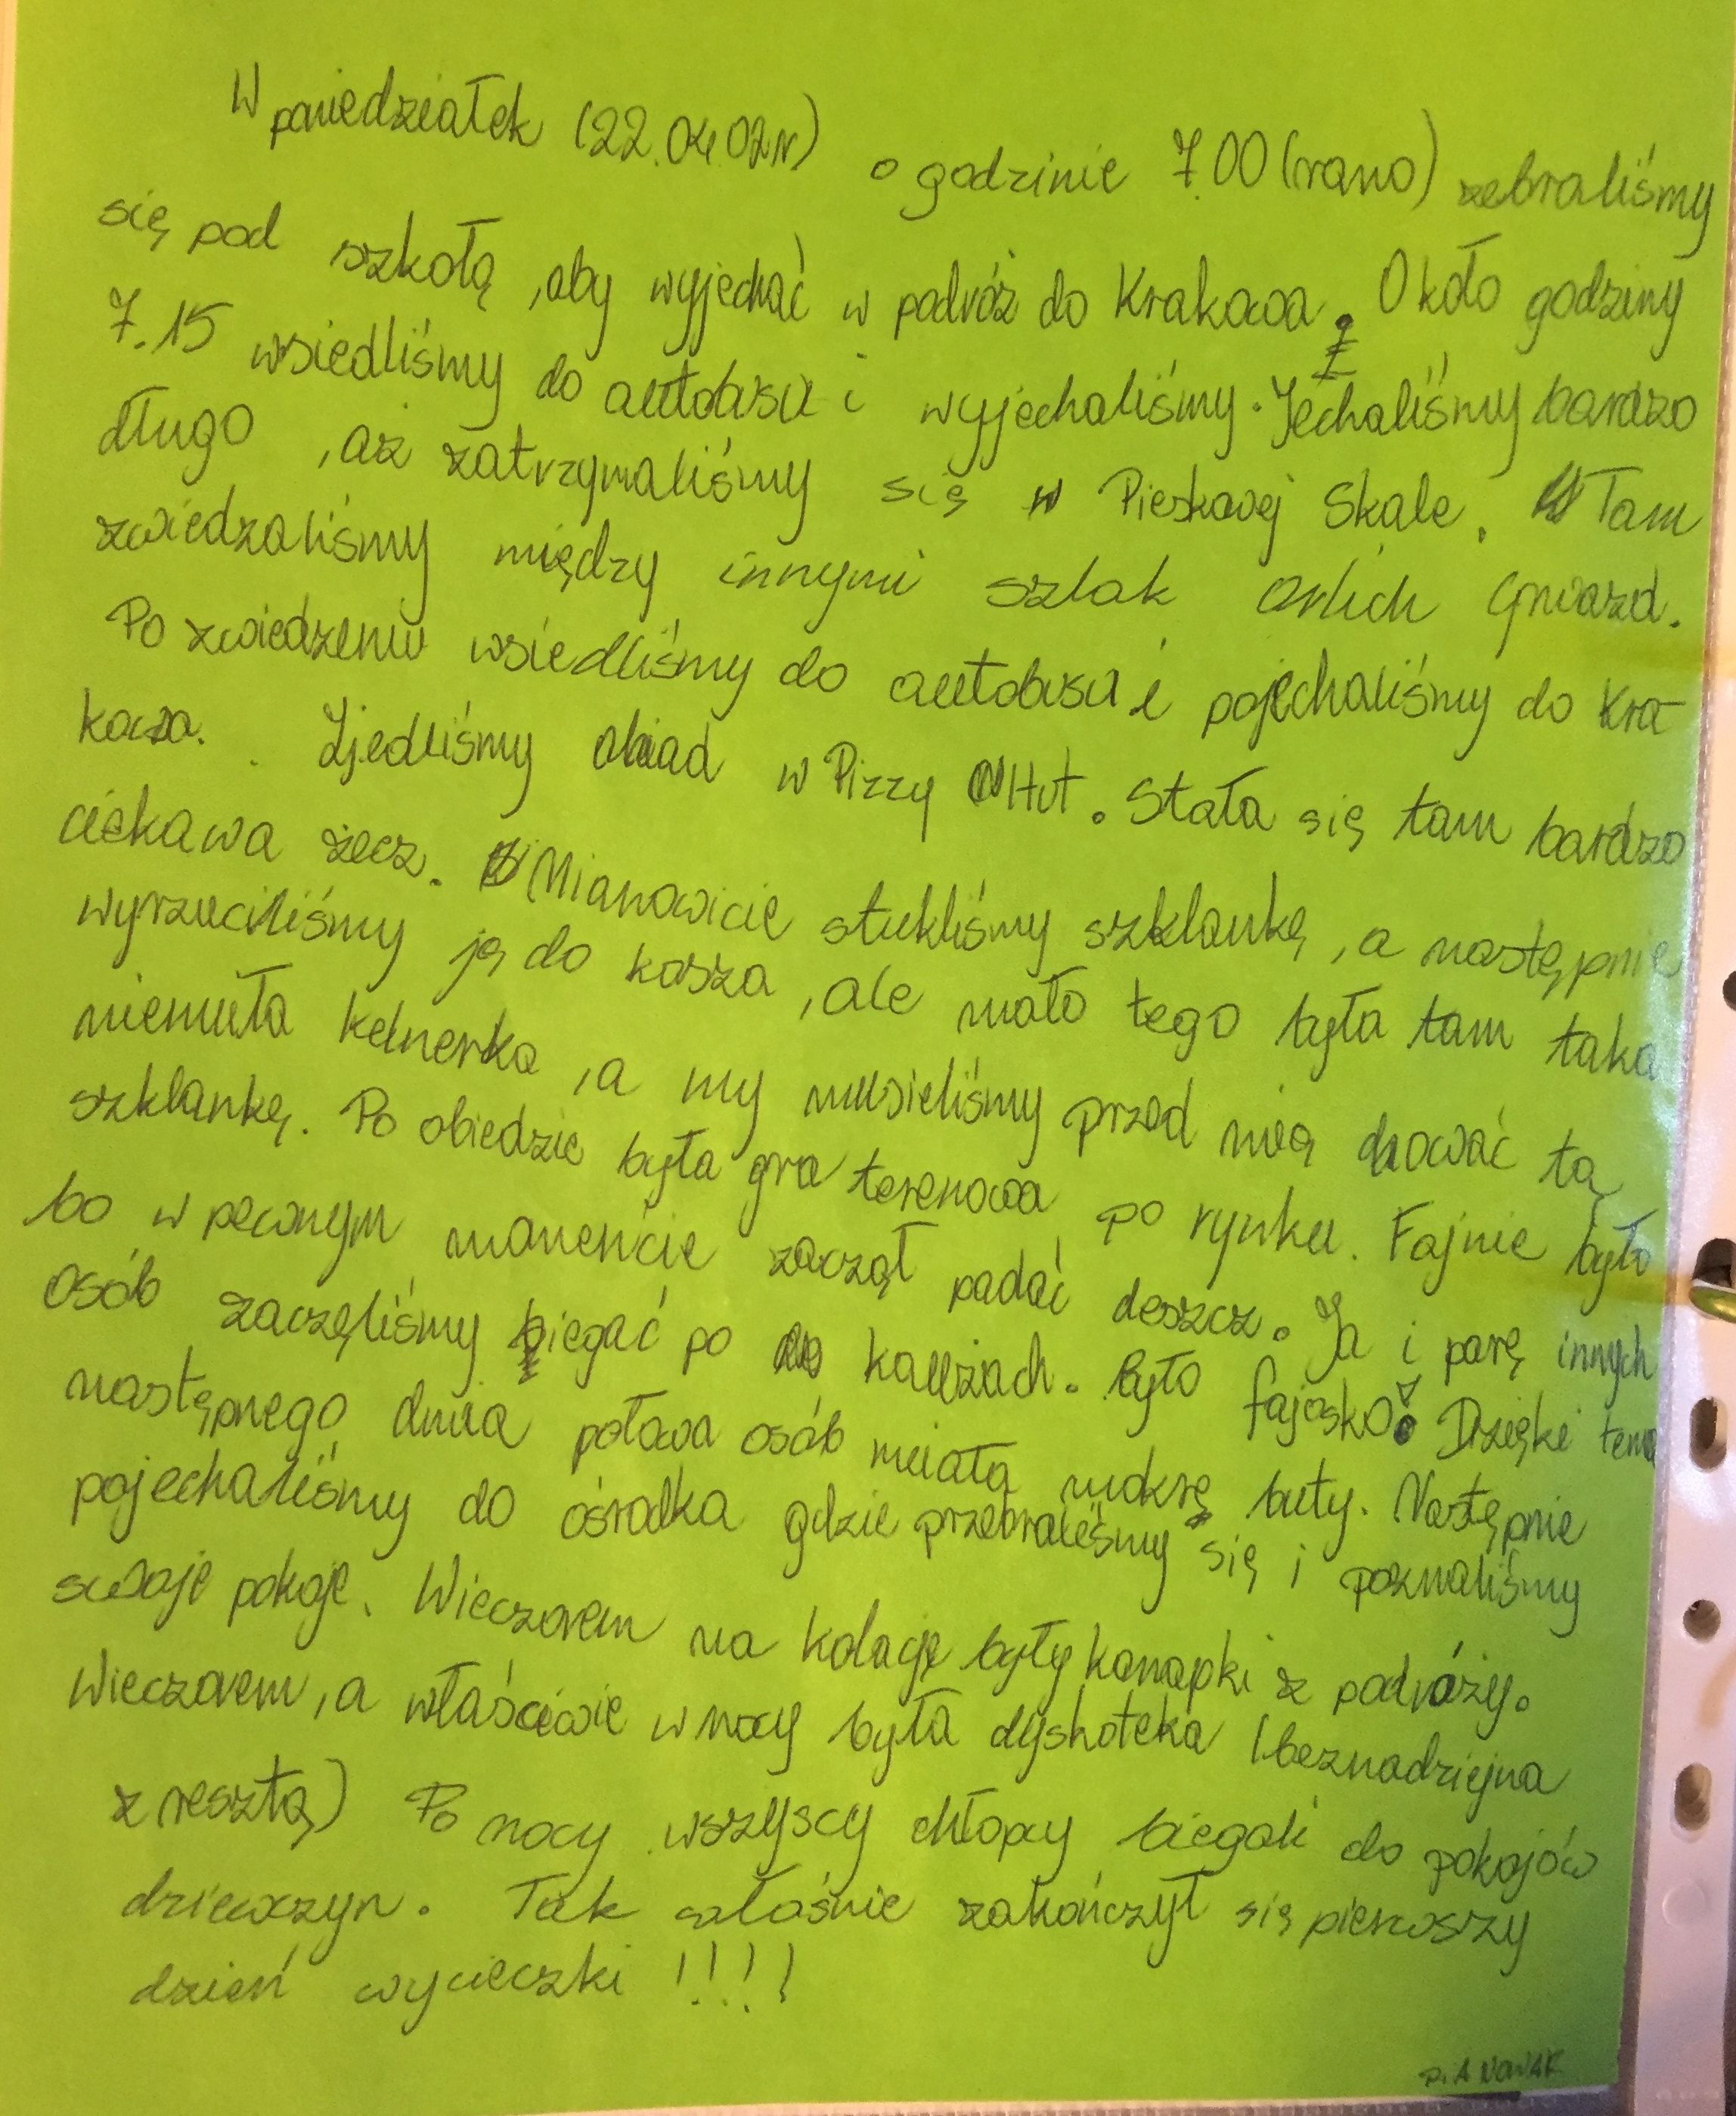 W poniedziałek (22.04.02r) o godzinie 7.00 (rano) zebraliśmy
się pod szkołą, aby wyjechać w podróż do Krakowa. Około godziny
7.15 wsiedliśmy do autobusu i wyjechaliśmy. Jechaliśmy bardzo
długo, aż zatrzymaliśmy się w Pieskowej Skale. Tam
zwiedzaliśmy między innymi szlak Orlich Gniazd.
Po zwiedzeniu wsiedliśmy do autobusu i pojechaliśmy do Kra-
kowa. Zjedliśmy obiad w Pizzy Hut. Stała się tam bardzo
ciekawa żecz. Mianowicie stukliśmy szklankę, a następnie
wyrzuciliśmy ją do kosza, ale mało tego była tam taka
niemiła kelnerka, a my musieliśmy przed nią chować tą
szklankę. Po obiedzie była gra terenowa po rynku. Fajnie było
bo w pewnym momencie zaczął padać deszcz. Ja i parę innych
osób zaczęliśmy biegać po kałużach. Było fajosko! Dzięki temu
następnego dnia połowa osób miała mokrę buty. Następnie
pojechaliśmy do ośrodka gdzie przebraliśmy się i poznaliśmy
swoje pokoje. Wieczorem na kolację były kanapki z podróży.
Wieczorem, a właściwie w nocy była dyskoteka (beznadziejna
z resztą) Po nocy wszyscy chłopcy biegali do pokojów
dziewczyn. Tak właśnie zakończył się pierwszy
dzień wycieczki !!!!
P.A NOWAK